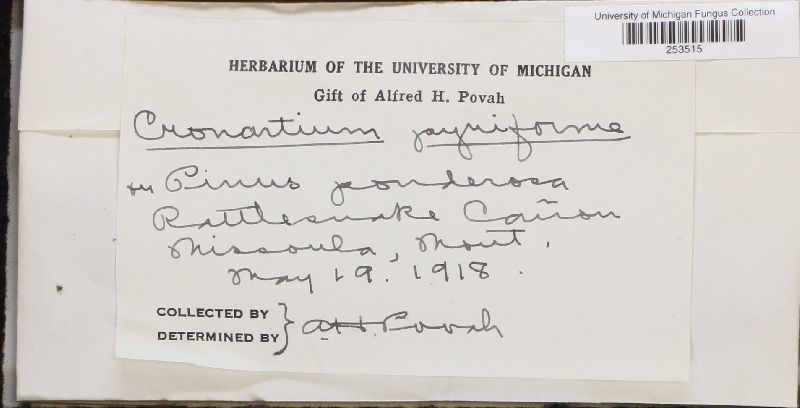 University of Michigan Fungus Collection
253515
HERBARIUM OF THE UNIVERSITY OF MICHIGAN
Gift of Alfred H. Povah
Cronartium pyriforme
on Pinus ponderosa
Rattlesnake Cañon
Missoula, Mont.
May 19. 1918.
COLLECTED BY
DETERMINED BY } A.H. Povah